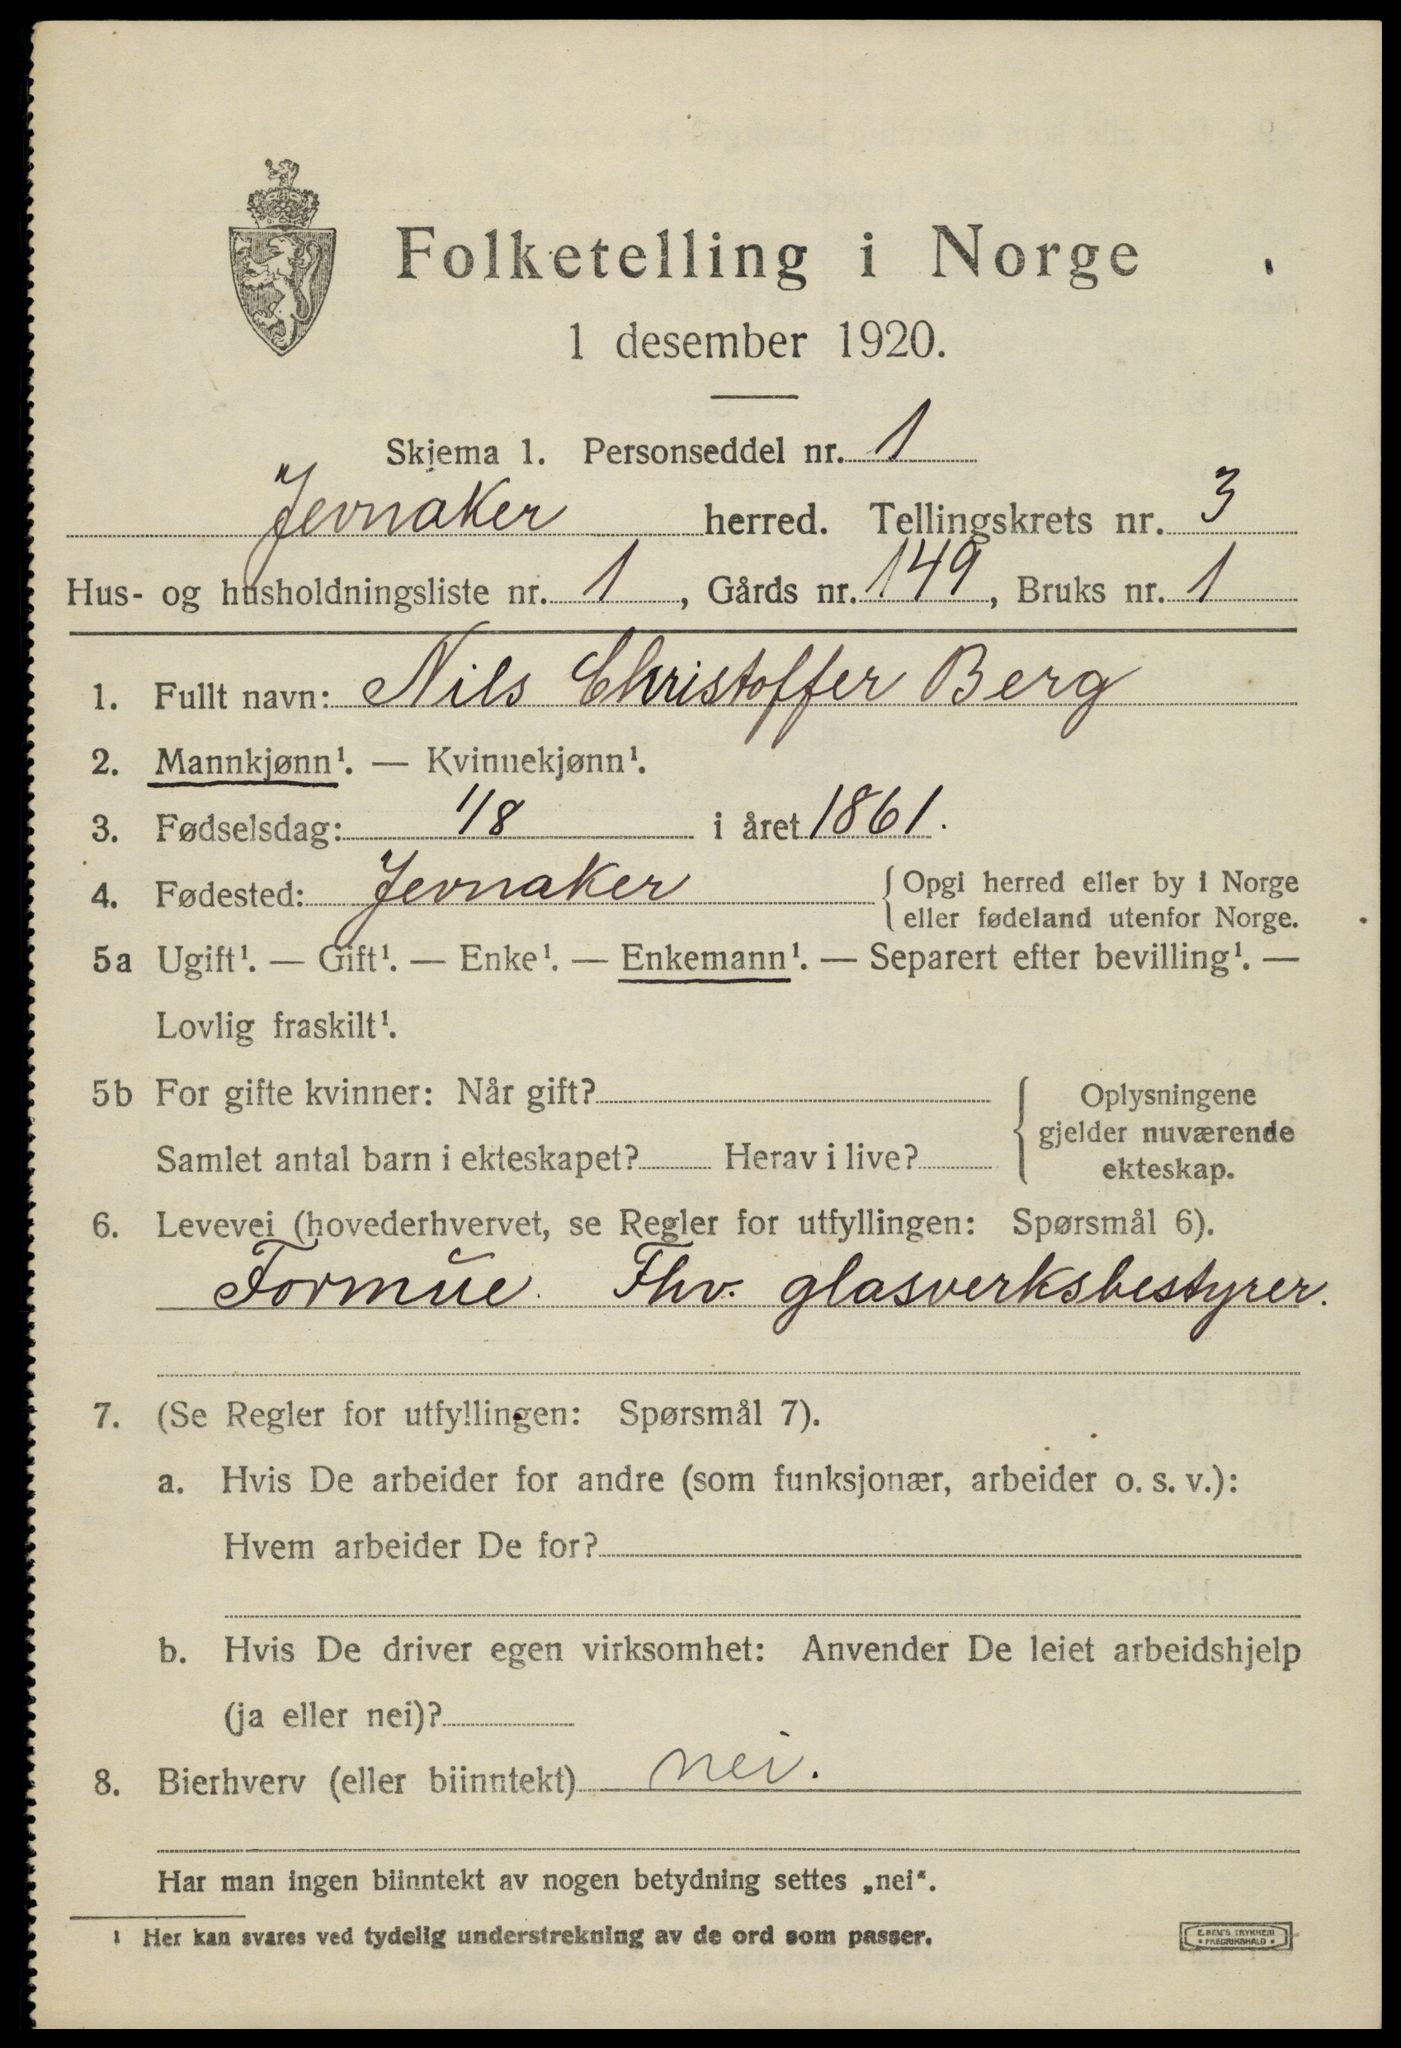 Folketelling i Norge
1 desember 1920.
Skjema 1. Personseddel nr. 1
Jevnaker herred. Tellingskrets nr. 3
Hus- og husholdningsliste nr. 1, Gårds nr. 149, Bruks nr. 1
1. Fullt navn: Nils Christoffer Berg
2. Mannkjønn¹. — Kvinnekjønn¹.
3. Fødselsdag: 1/8 i året 1861.
4. Fødested: Jevnaker { Opgi herred eller by i Norge
eller fødeland utenfor Norge.
5a Ugift¹. — Gift¹. — Enke¹. — Enkemann¹. — Separert efter bevilling¹. —
Lovlig fraskilt¹.
5b For gifte kvinner: Når gift? { Oplysningene
gjelder nuværende
Samlet antal barn i ekteskapet? Herav i live? ekteskap.
6. Levevei (hovederhvervet, se Regler for utfyllingen: Spørsmål 6).
Formue. Fhv. glasverksbestyrer.
7. (Se Regler for utfyllingen: Spørsmål 7).
a. Hvis De arbeider for andre (som funksjonær, arbeider o. s. v.):
Hvem arbeider De for?
b. Hvis De driver egen virksomhet: Anvender De leiet arbeidshjelp
(ja eller nei)?
8. Bierhverv (eller biinntekt) nei.
Har man ingen biinntekt av nogen betydning settes „nei".
¹ Her kan svares ved tydelig understrekning av de ord som passer.
E. SEM'S TRYKKERI
• FREDRIKSHALD •